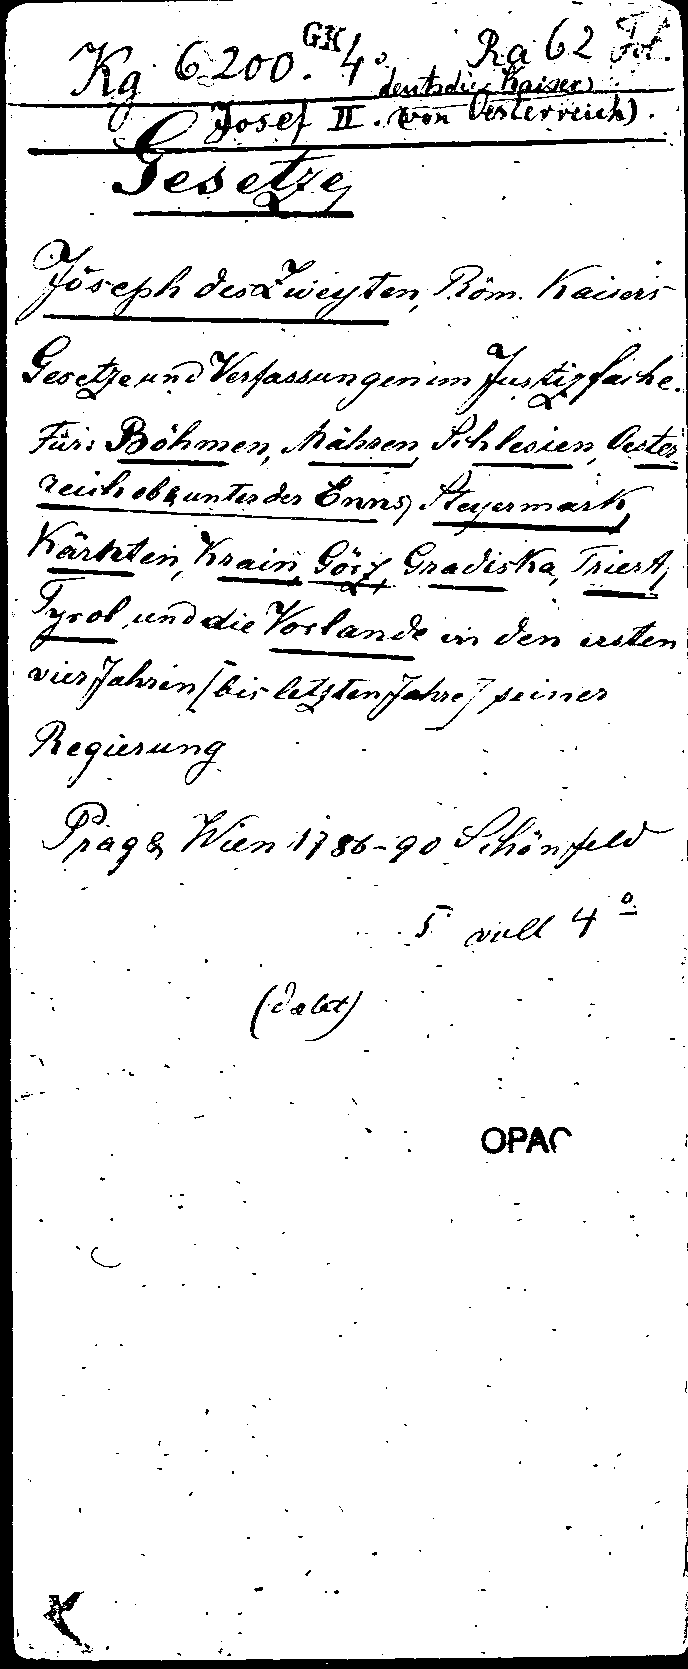 Kg 6200. GK 4° Ra 62 Fol.
deutscher Kaiser
Josef II. (von Oesterreich).
Gesetze
Joseph des Zweyten, Röm. Kaisers
Gesetze und Verfassungen im Justizfache.
Für: Böhmen, Mähren, Schlesien, Oester
reich ob & unter der Enns, Steyermark,
Kärnten, Krain, Görz, Gradiska, Triest,
Tyrol und die Vorlande in den ersten
vier Jahren [bis letzten Jahre] seiner
Regierung
Prag & Wien 1786-90 Schönfeld
5 voll 4°
OPAC